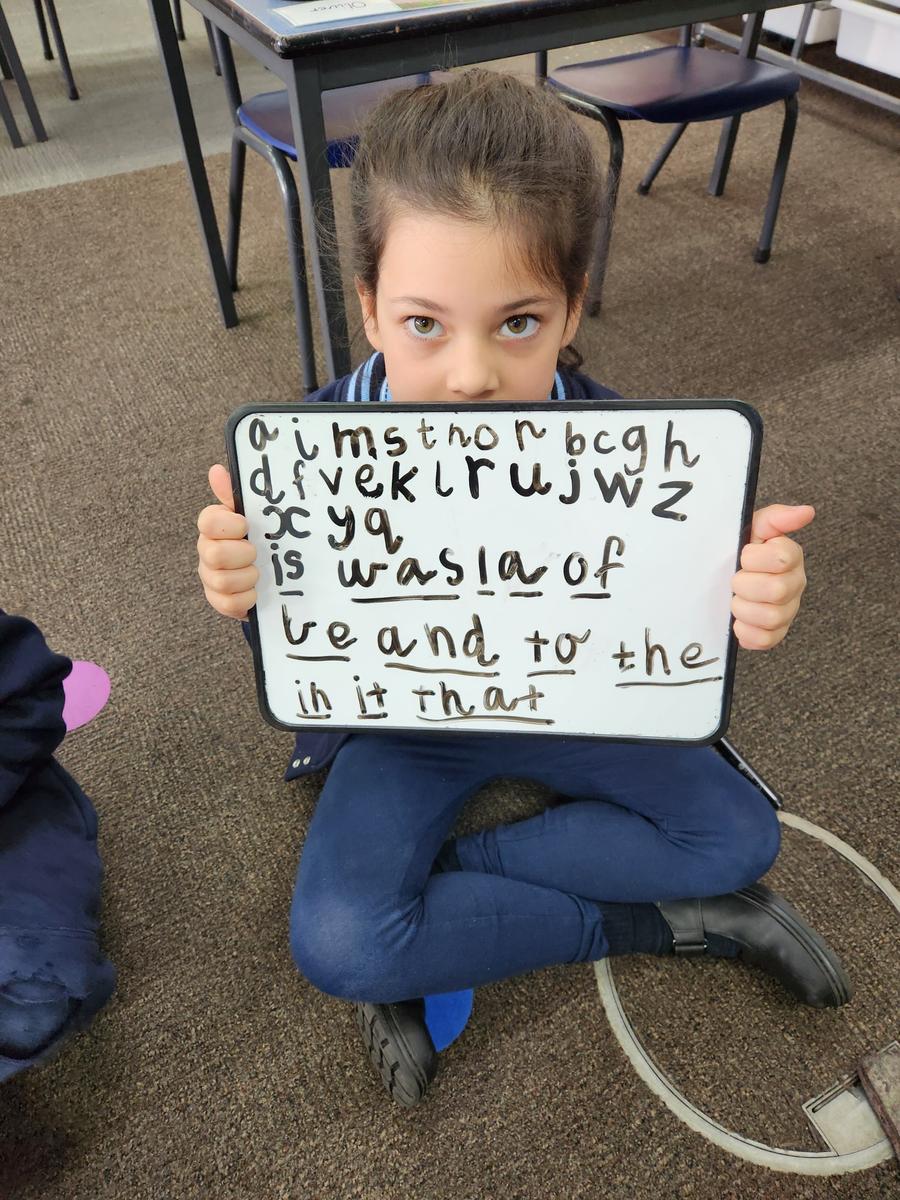 Oliver
a i m s t n o n b c g h
d f v e k l r u j w z
x y q
is was I a of
be and to the
in it that